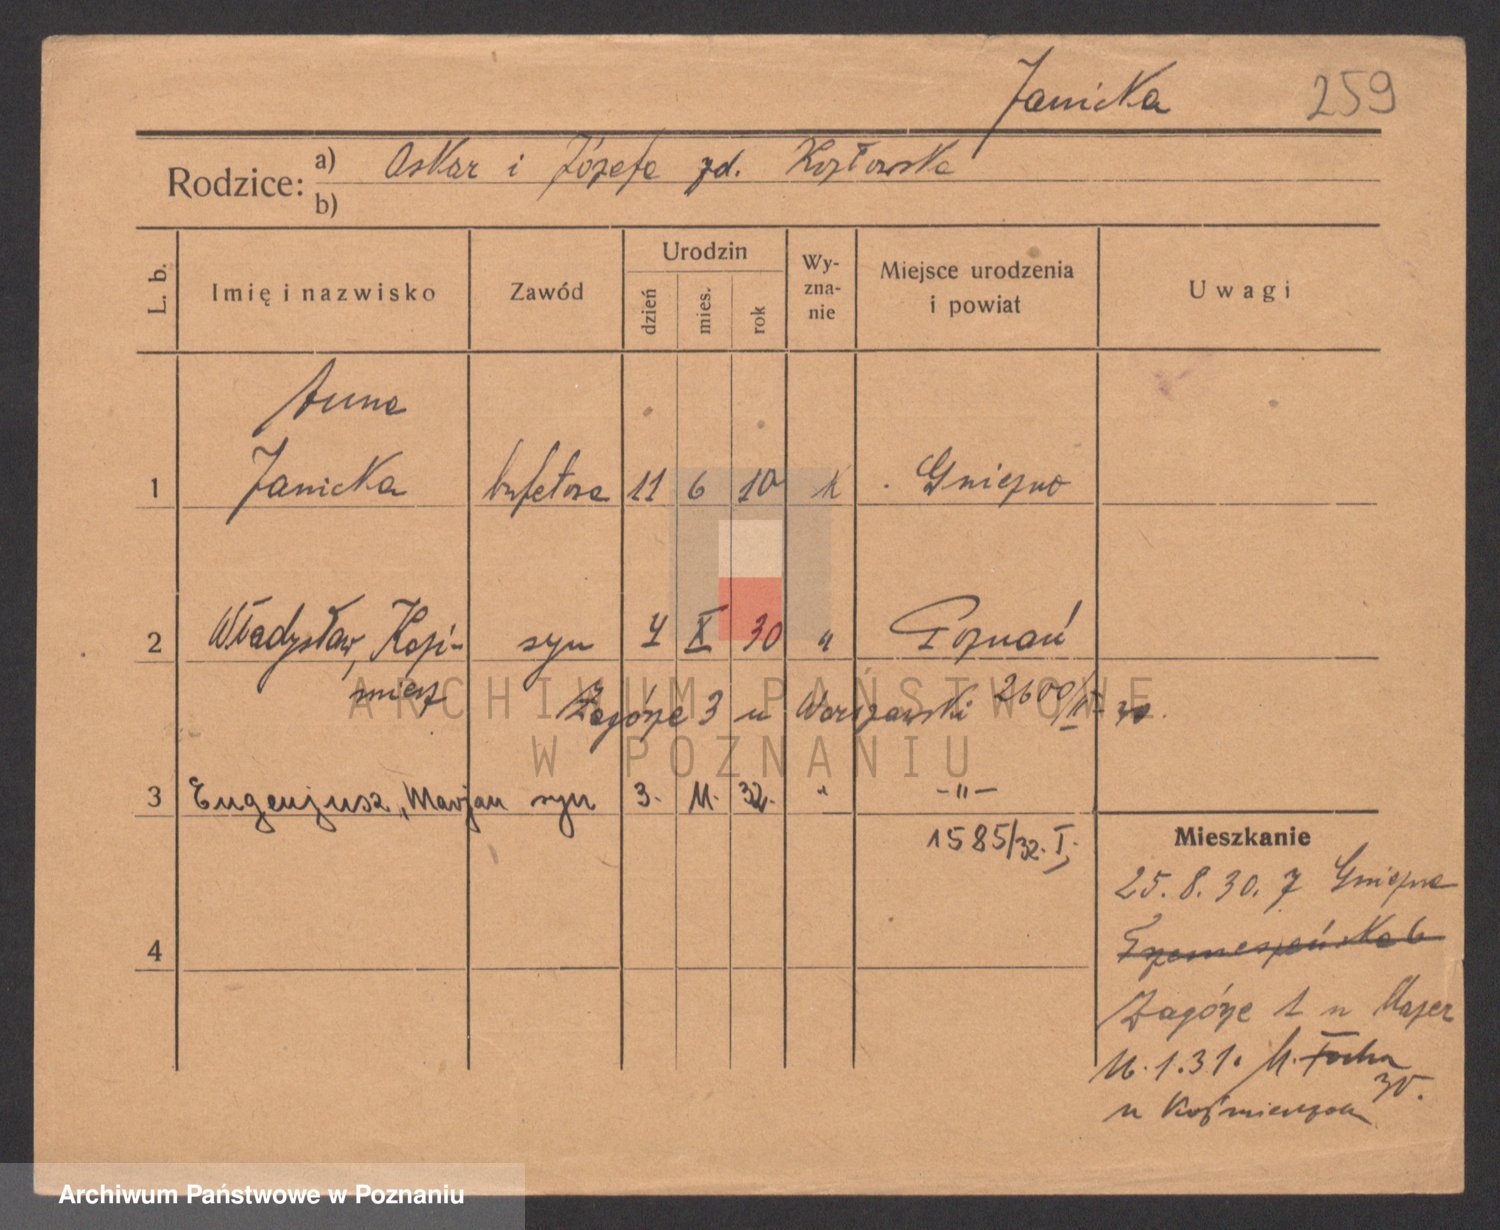 Janicka 259
Rodzice: a) Oskar i Józefa zd. Kozłowska
b)
L. b. Imię i nazwisko Zawód Urodzin dzień mies. rok Wy-zna-nie Miejsce urodzenia i powiat Uwagi
Anna
1 Janicka bufetowa 11 6 10 k Gniezno
2 Władysław, Kazi- syn 4 X 30 " Poznań
mierz Zagórze 3 u Warszawski 2600/IV 30.
ARCHIWUM PAŃSTWOWE
W POZNANIU
3 Eugenjusz, Marjan syn 3. 11. 32. " -"-
1585/32. I.
Mieszkanie
25. 8. 30. z Gniezna
4 Trzemeszeńska 6
Zagórze 1 u Majer
16. 1. 31. M. Focha
30.
u
Archiwum Państwowe w Poznaniu